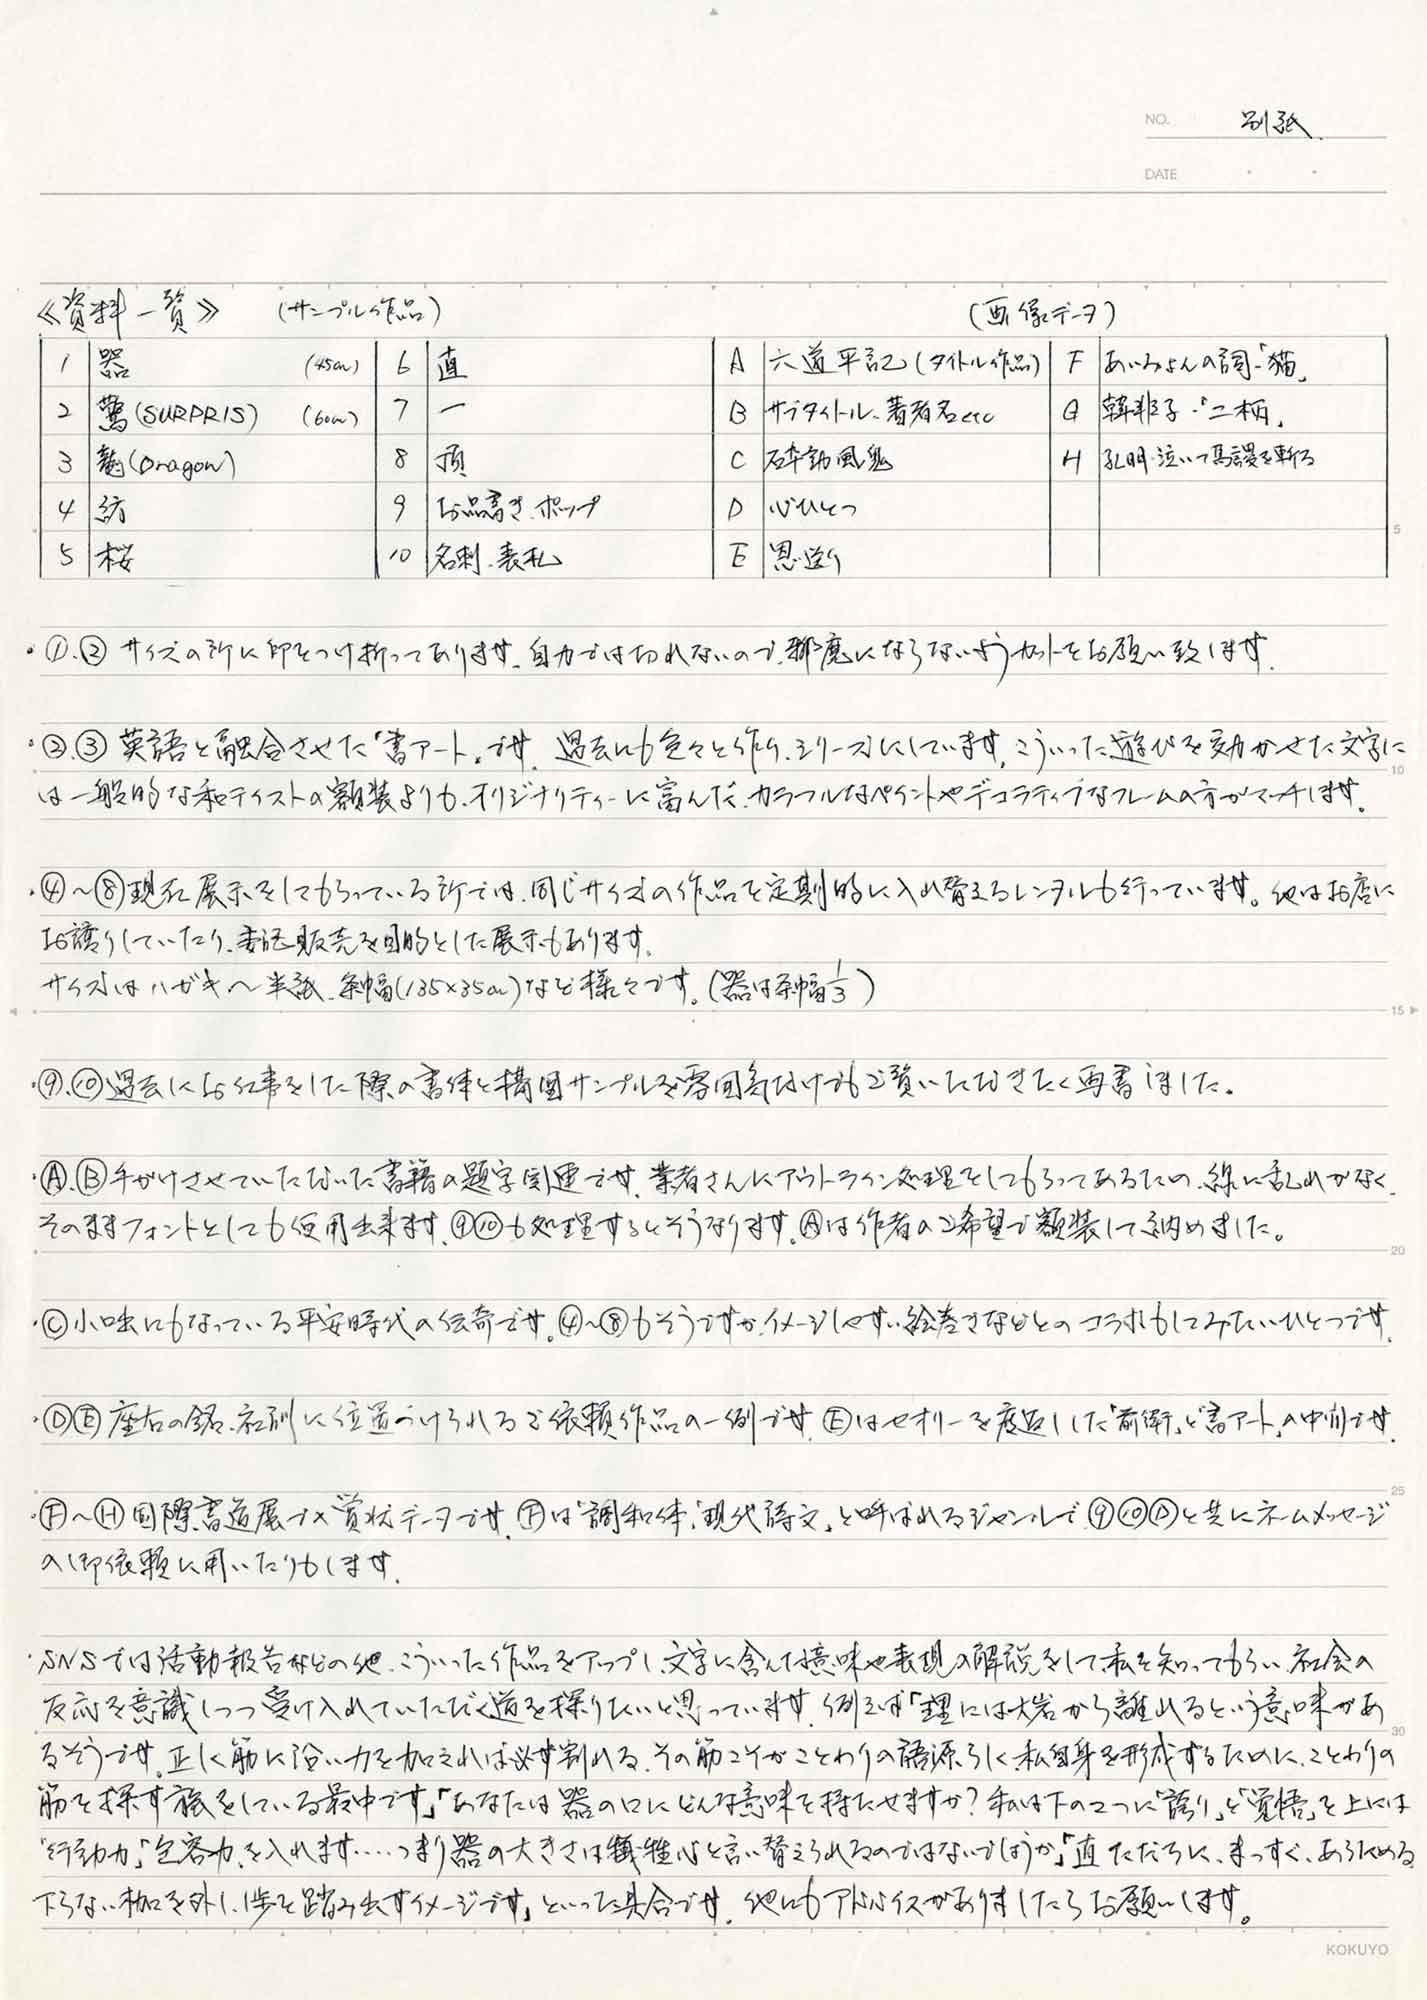 NO. 別紙
DATE
《資料一覧》 (サンプル作品) (画像データ)
1 器 (45cm) 6 直 A 六道平記(タイトル作品) F あいみょんの詞・「猫」
2 驚(SURPRIS) (60cm) 7 一 B サブタイトル、著者名etc G 韓非子・「二柄」
3 龍(Dragon) 8 頂 C 酔勢風鬼 H 孔明・泣いて馬謖を斬る
4 紡 9 お品書き、ポップ D 心ひとつ
5 桜 10 名刺、表札 E 恩送り
・①.② サイズの所に印をつけ折ってあります。自力では切れないので、邪魔にならないようカットをお願い致します。
・②.③ 英語と融合させた「書アート」です。過去にも色々と作り、シリーズにしています。こういった遊びを効かせた文字に
は一般的な和テイストの額装よりも、オリジナリティーに富んだ、カラフルなペイントやデコラティブなフレームの方がマッチします。
・④〜⑧現在展示をしてもらっている所では、同じサイズの作品を定期的に入れ替えるレンタルも行っています。他はお店に
お譲りしていたり、委託販売を目的とした展示もあります。
サイズはハガキ〜半紙、条幅(135×35cm)など様々です。(器は条幅1/3)
・⑨.⑩過去にお仕事をした際の書体と構図サンプルを雰囲気だけでもご覧いただきたく再書しました。
・Ⓐ.Ⓑ手がけさせていただいた書籍の題字関連です。業者さんにアウトライン処理をしてもらってあるため、線に乱れがなく、
そのままフォントとしても使用出来ます。⑨⑩も処理するとそうなります。Ⓐは作者のご希望で額装して納めました。
・Ⓒ小咄にもなっている平安時代の伝奇です。④〜⑧もそうですが、イメージしやすい絵巻きなどとのコラボもしてみたいひとつです。
・ⒹⒺ座右の銘、社訓に位置づけられるご依頼作品の一例です。Ⓔはセオリーを度返しした「前衛」と「書アート」の中間です。
・Ⓕ〜Ⓗ国際書道展の賞状データです。Ⓕは「調和体」「現代詩文」と呼ばれるジャンルで、⑨⑩Ⓓと共にネームメッセージ
の御依頼に用いたりもします。
・SNSでは活動報告などの他、こういった作品をアップし、文字に含んだ意味や表現の解説をして、私を知ってもらい、社会の
反応を意識しつつ受け入れていただく道を探りたいと思っています。例えば「理には大岩から離れるという意味があ
るそうです。正しく筋に沿い力を加えれば必ず割れる。その筋こそがことわりの語源らしく、私自身を形成するために、ことわりの
筋を探す旅をしている最中です」「あなたは器の口にどんな意味を持たせますか?私は下の2つに「誇り」と「覚悟」を上には
「行動力」「包容力」を入れます……つまり器の大きさは犠牲心と言い替えられるのではないでしょうか」「直 ただちに、まっすぐ、あらためる
下らない枷を外し、1歩を踏み出すイメージです」といった具合です。他にもアドバイスがありましたらお願いします。
KOKUYO